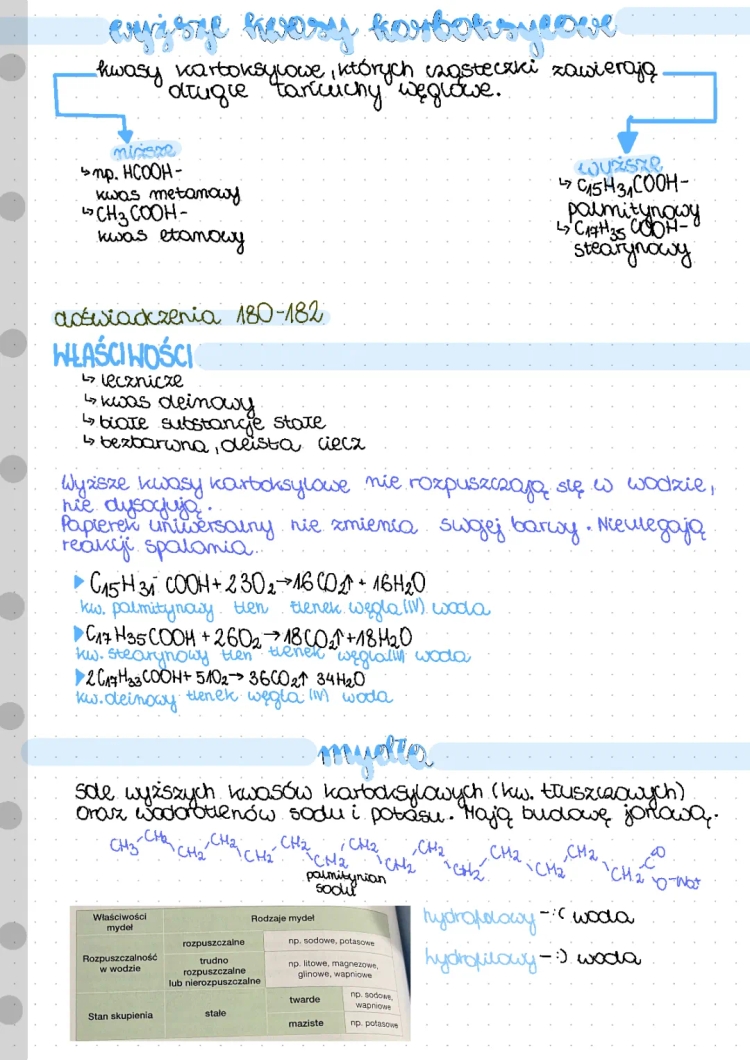 wyższe kwasy karboksylowe
kwasy karboksylowe, których cząsteczki zawierają
długie łańcuchy węglowe.
niższe
↳ np. HCOOH -
kwas metanowy
↳ CH3COOH -
kwas etanowy
wyższe
↳ C15H31COOH -
palmitynowy
↳ C17H35COOH -
stearynowy
doświadczenia 180-182
WŁAŚCIWOŚCI
↳ lecznicze
↳ kwas oleinowy
↳ białe substancje stałe
↳ bezbarwna, oleista ciecz
Wyższe kwasy karboksylowe nie rozpuszczają się w wodzie,
nie dysocjują.
Papierek uniwersalny nie zmienia swojej barwy. Nie ulegają
reakcji spalania.
▶ C15H31COOH + 23O2 → 16CO2↑ + 16H2O
kw. palmitynowy tlen tlenek węgla (IV) woda
▶ C17H35COOH + 26O2 → 18CO2↑ + 18H2O
kw. stearynowy tlen tlenek węgla (IV) woda
▶ 2C17H33COOH + 51O2 → 36CO2↑ 34H2O
kw. oleinowy tlenek węgla (IV) woda
mydła
sole wyższych kwasów karboksylowych (kw. tłuszczowych)
oraz wodorotlenów sodu i potasu. Mają budowę jonową.
CH3 CH2 CH2 CH2 CH2 CH2 CH2 CH2 CH2 CH2 CH2 CH2 CH2 CH2 CH2 C O O-Na+
palmitynian
sodu
Właściwości mydeł
Rodzaje mydeł
Rozpuszczalność w wodzie
rozpuszczalne
np. sodowe, potasowe
trudno rozpuszczalne lub nierozpuszczalne
np. litowe, magnezowe, glinowe, wapniowe
Stan skupienia
stałe
twarde
np. sodowe, wapniowe
maziste
np. potasowe
hydrofobowy - :( woda
hydrofilowy - :) woda